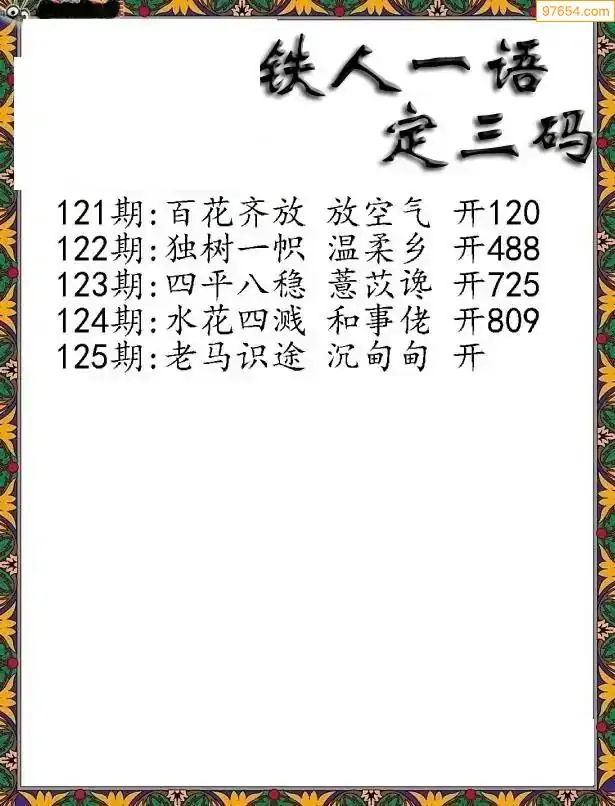 97654.com
铁人一语
定三码
121期:百花齐放 放空气 开120
122期:独树一帜 温柔乡 开488
123期:四平八稳 薏苡谗 开725
124期:水花四溅 和事佬 开809
125期:老马识途 沉甸甸 开